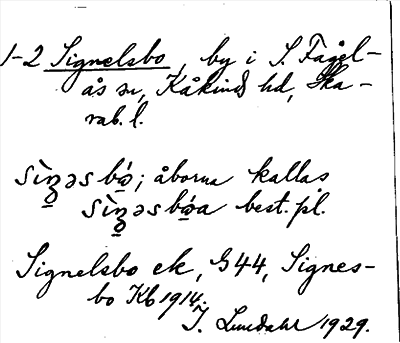 1-2 Signelsbo, by i S. Fågel-
ås sn, Kåkinds hd, Ska-
rab. l.
sìŋəs bó; åborna kallas
sìŋəs bóa best. pl.
Signelsbo ek, G44, Signes-
bo Kb 1914.
I. Lundahl 1929.